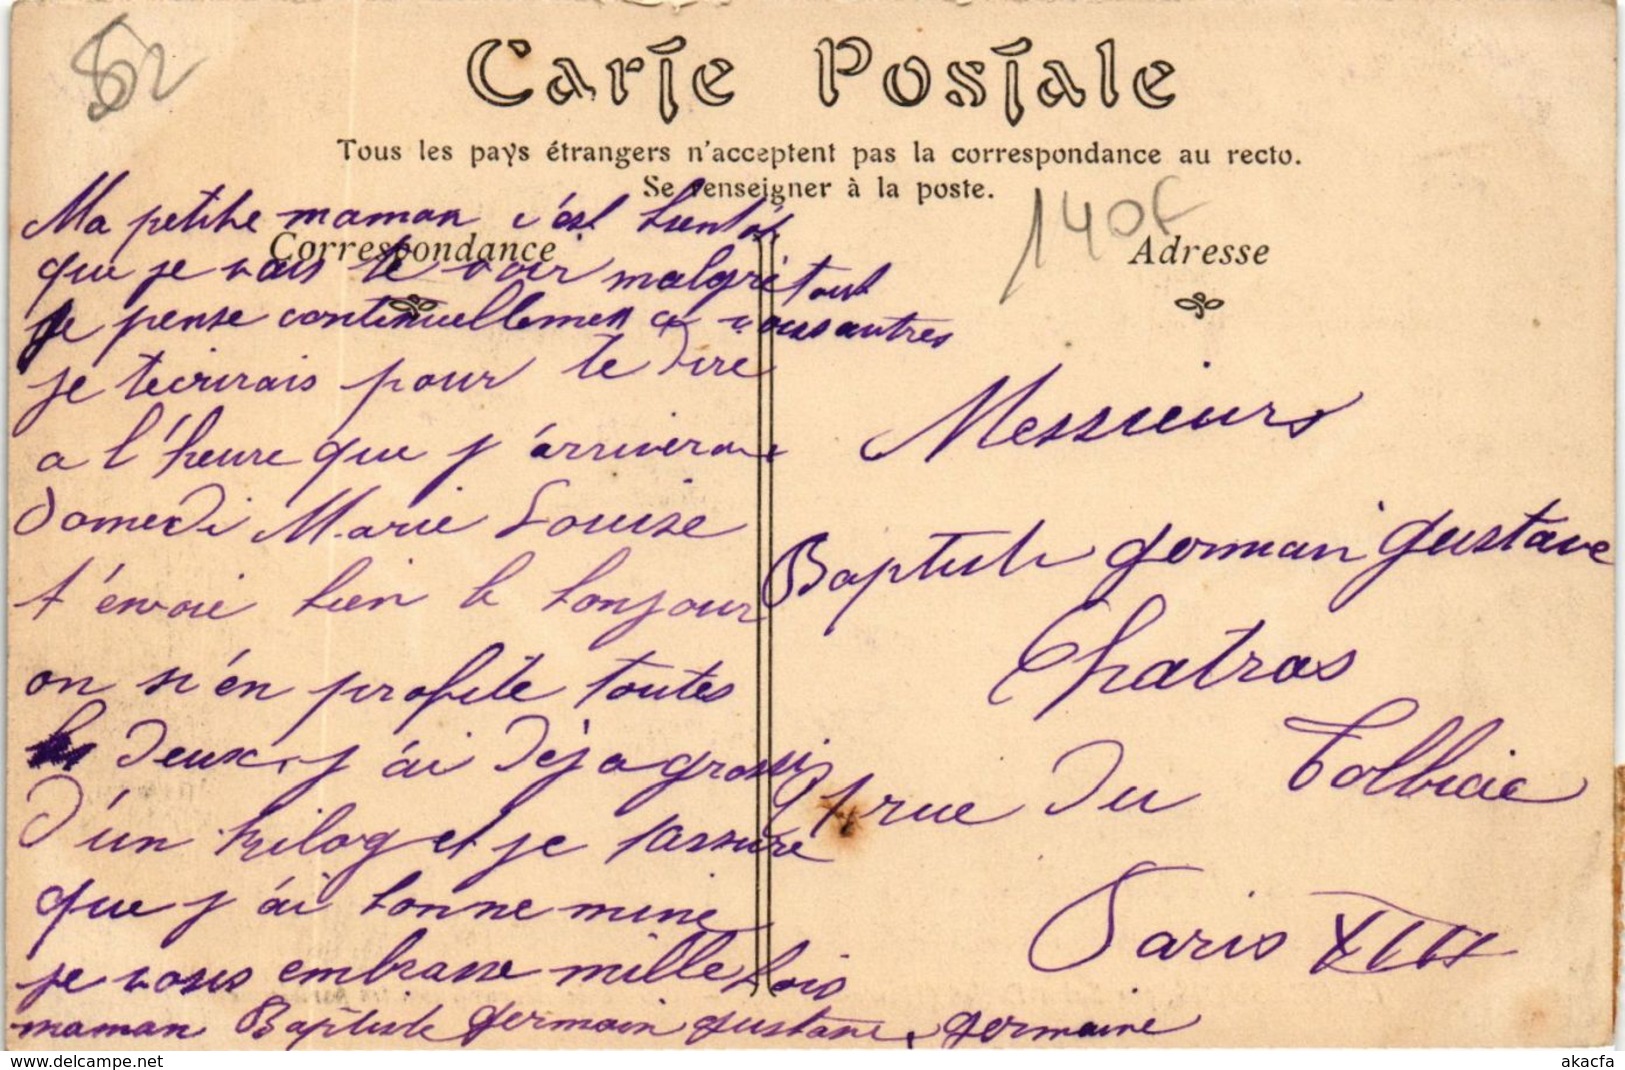 52
Carte Postale
Tous les pays étrangers n'acceptent pas la correspondance au recto.
Se renseigner à la poste.
140F
Correspondance
Adresse
Ma petite maman c'est bientôt
que je vais te voir malgré tout
je pense continuellemen a vous autres
je tecrirais pour te dire
a l'heure que j'arriverai
Samedi Marie Louise
t'envoie bien le bonjour
on s'en profite toutes
les deux, j'ai déja grossi
d'un kilog et je tassure
que j'ai bonne mine
je vous embrasse mille fois
maman Baptiste germain gustave, germaine
Messieurs
Baptiste germain gustave
Chatras
rue du Tolbiac
Paris XIII
© akacfa
akacfa